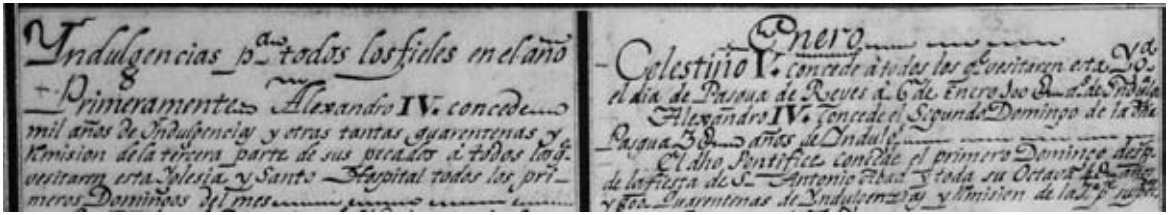 Yndulgencias pa. todos los fieles en el año
Primeramente Alexandro IV. concede
mil años de Yndulgencias y otras tantas quarentenas y
Rmision de la tercera parte de sus pecados à todos los q.
vesitaren esta Yglesia y Santo Hospital todos los pri-
meros Domingos del mes
Enero
Celestino V. concede à todos los q. vesitaren esta Yga.
el dia de Pasqua de Reyes à 6 de Enero 300
Alexandro IV. concede el Segundo Domingo de la dha
Pasqua 3 años de Yndulg.
El dho Pontifice concede el primero Domingo desp.
de la fiesta de Sn. Antonio Abad y toda su Octava
y 600 Quarentenas de Yndulgencias y Rmision de la